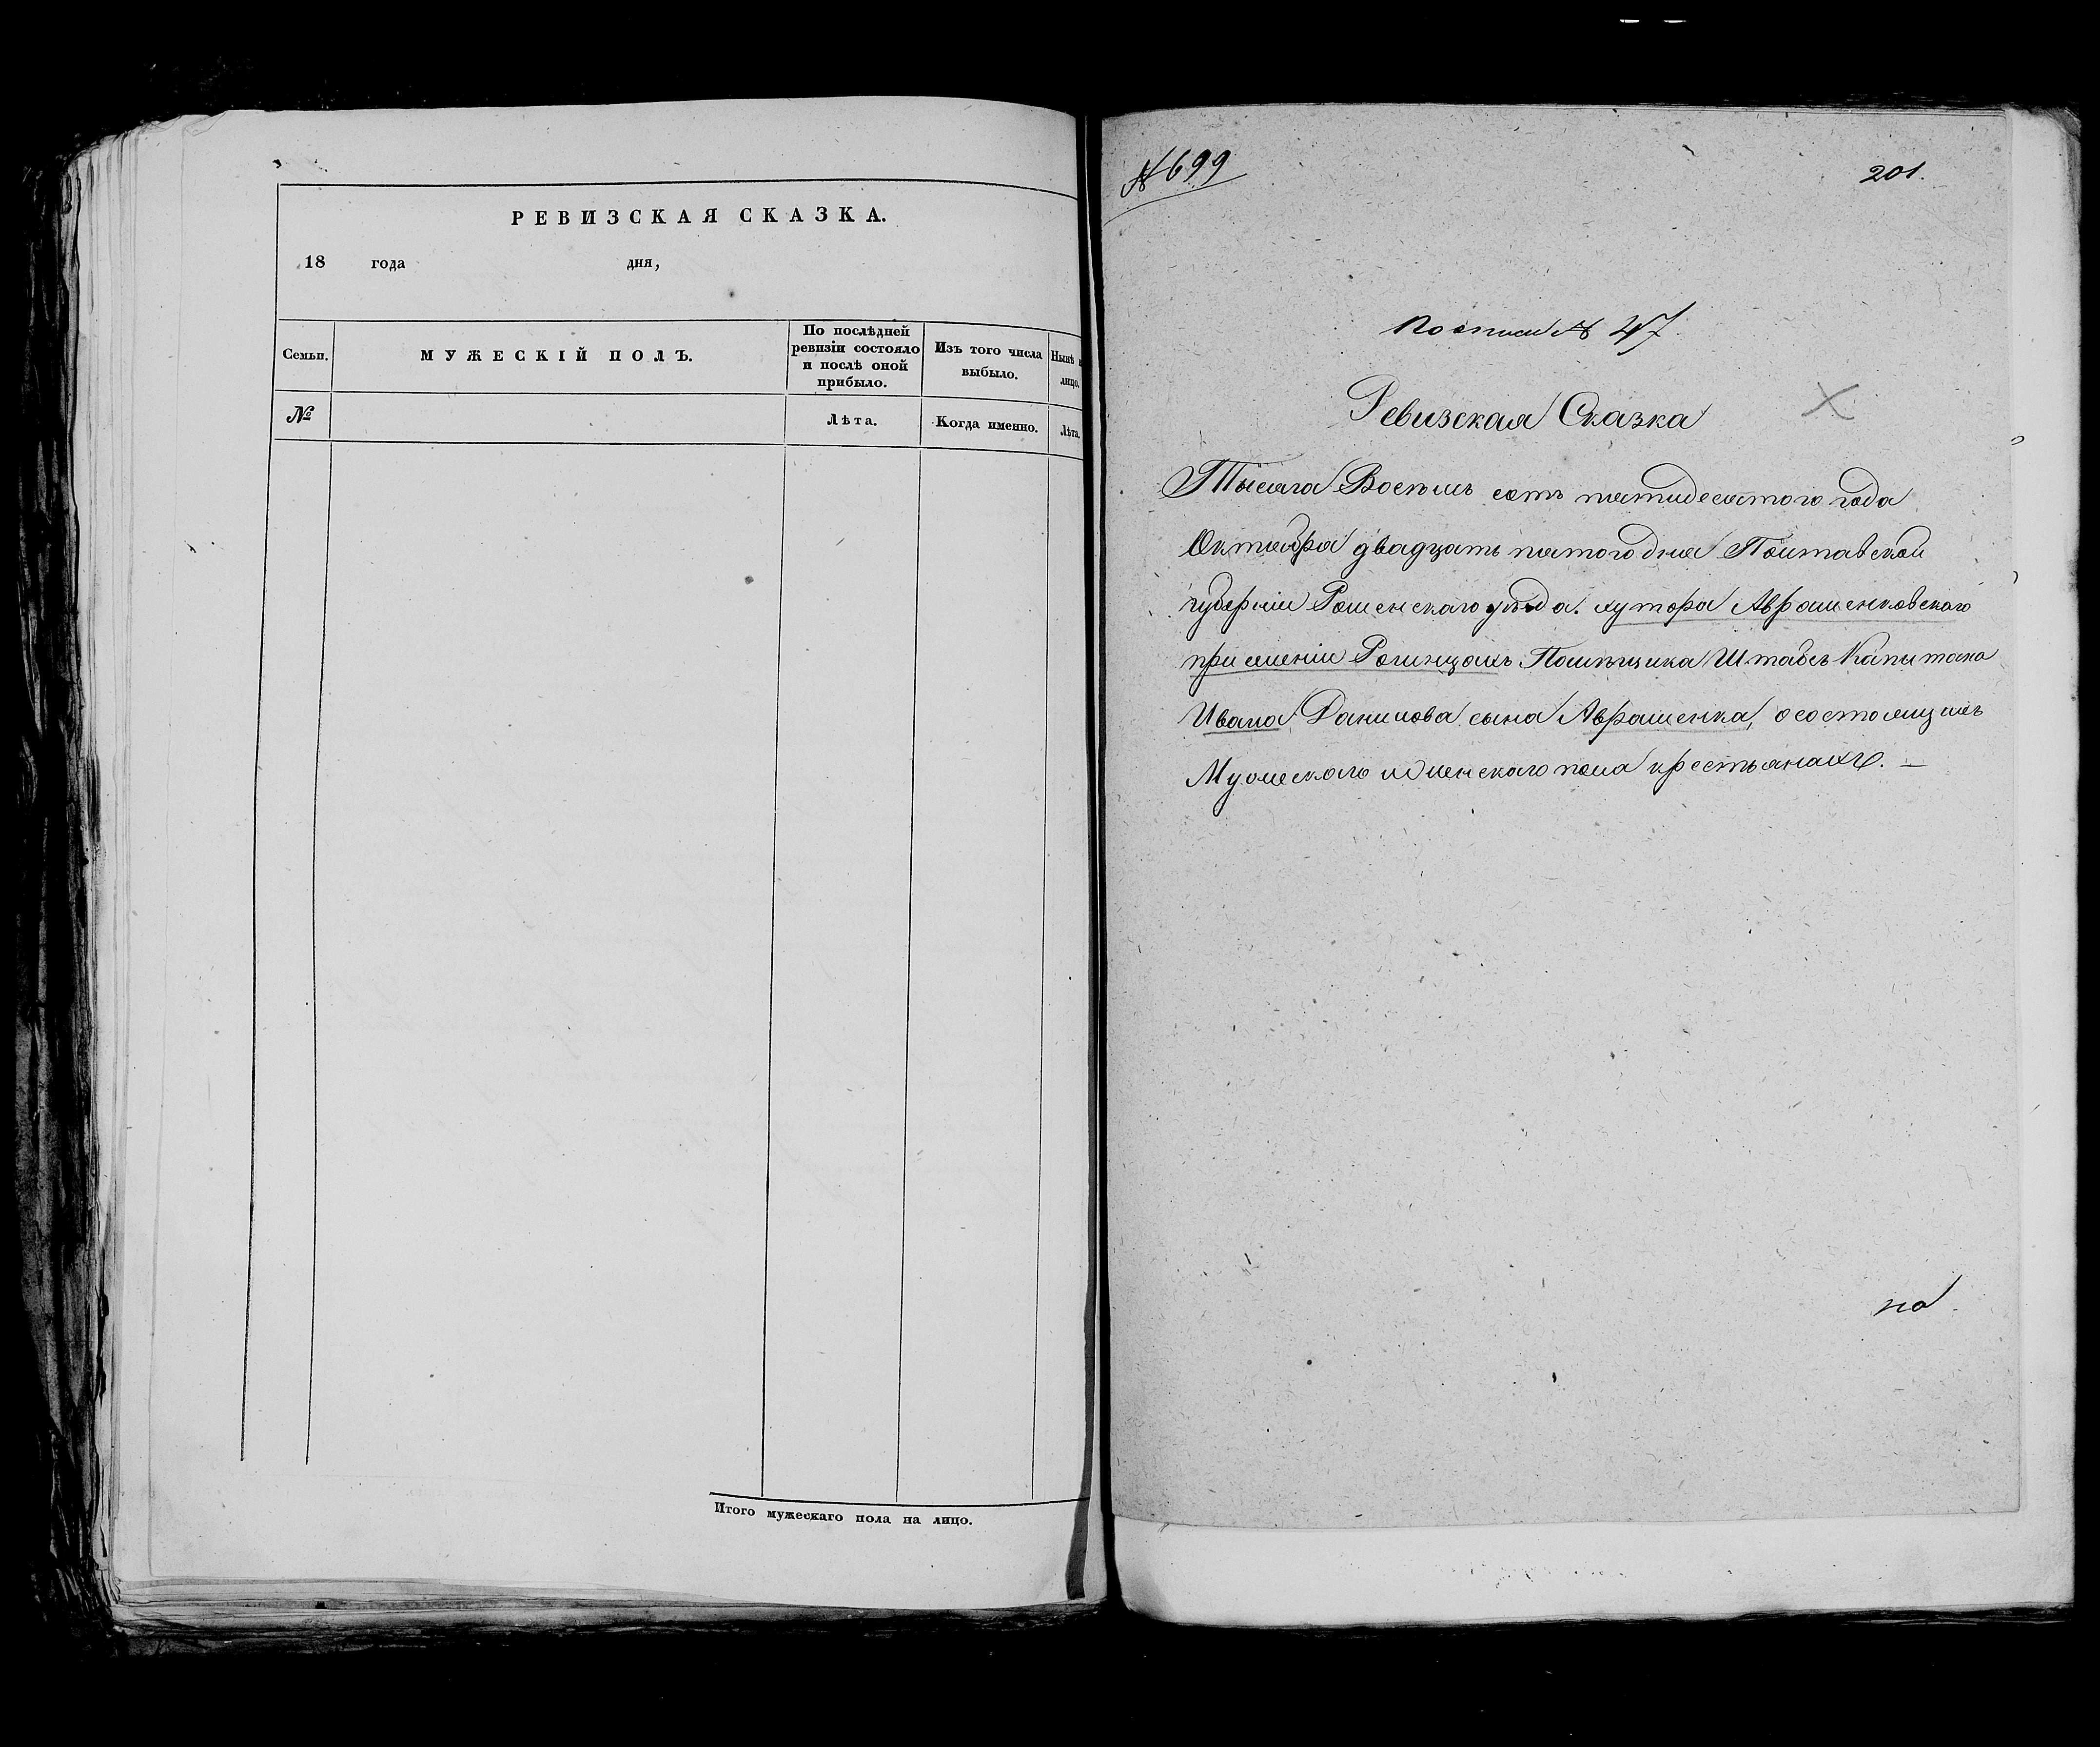 РЕВИЗСКАЯ СКАЗКА.
18 года дня,
Семьи.
МУЖЕСКІЙ ПОЛЪ.
По послѣдней
ревизіи состояло
и послѣ оной
прибыло.
Изъ того числа
выбыло.
Нынѣ
лицо.
№
Лѣта.
Когда именно.
Лѣта.
Итого мужескаго пола на лицо.
№ 699
201.
По описи № 47.
Ревизская Сказка
Тысяча Восемь сотъ пятидесятого года
Октября двадцать пятого дня Полтавской
губерніи Роменскаго уѣзда. хутора Аврашенковскаго
при имении Рогинцахъ Помѣщика Штабсъ Капитана
Ивана Данилова сына Аврашенка, о состоящихъ
Мужескаго и женскаго пола крестьянахъ. —
на